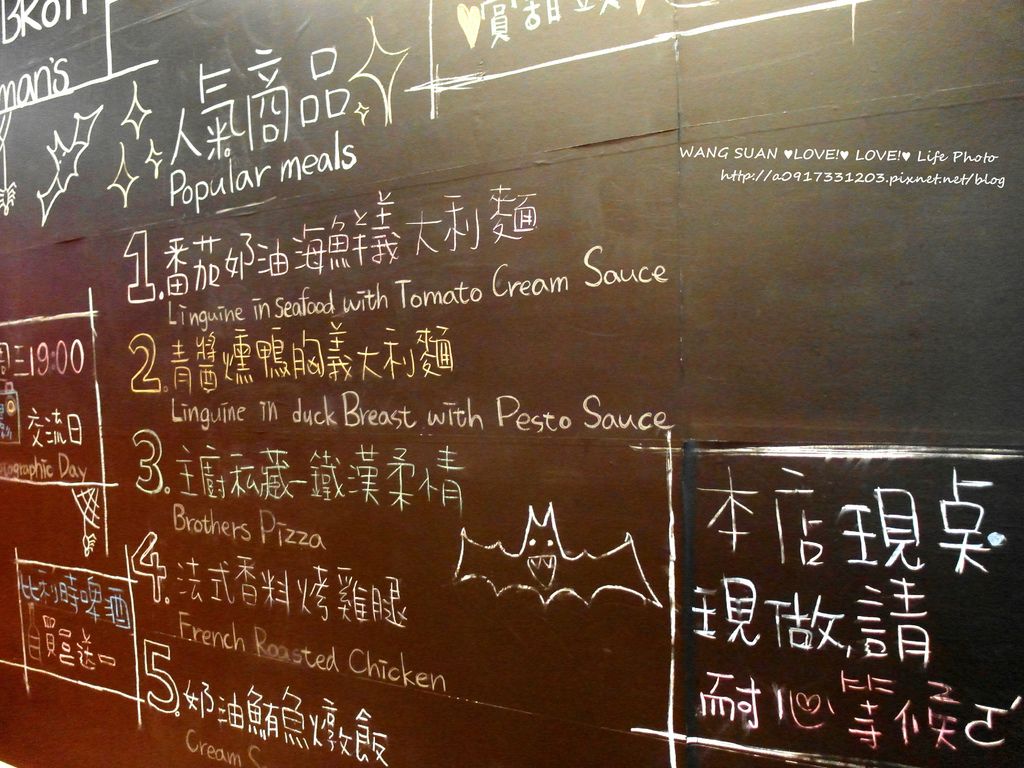 man's
人氣商品
Popular meals
WANG SUAN ♥LOVE!♥ LOVE!♥ Life Photo
http://a0917331203.pixnet.net/blog
1.番茄奶油海鮮義大利麵
Linguine in Seafood with Tomato Cream Sauce
2.青醬燻鴨胸義大利麵
Linguine in duck Breast with Pesto Sauce
3.主廚私藏-鐵漢柔情
Brothers Pizza
4.法式香料烤雞腿
French Roasted Chicken
5.奶油鮪魚燉飯
Cream S
周三19:00
交流日
ographic Day
比利時啤酒
買三送一
本店現桌
現做,請
耐心等候